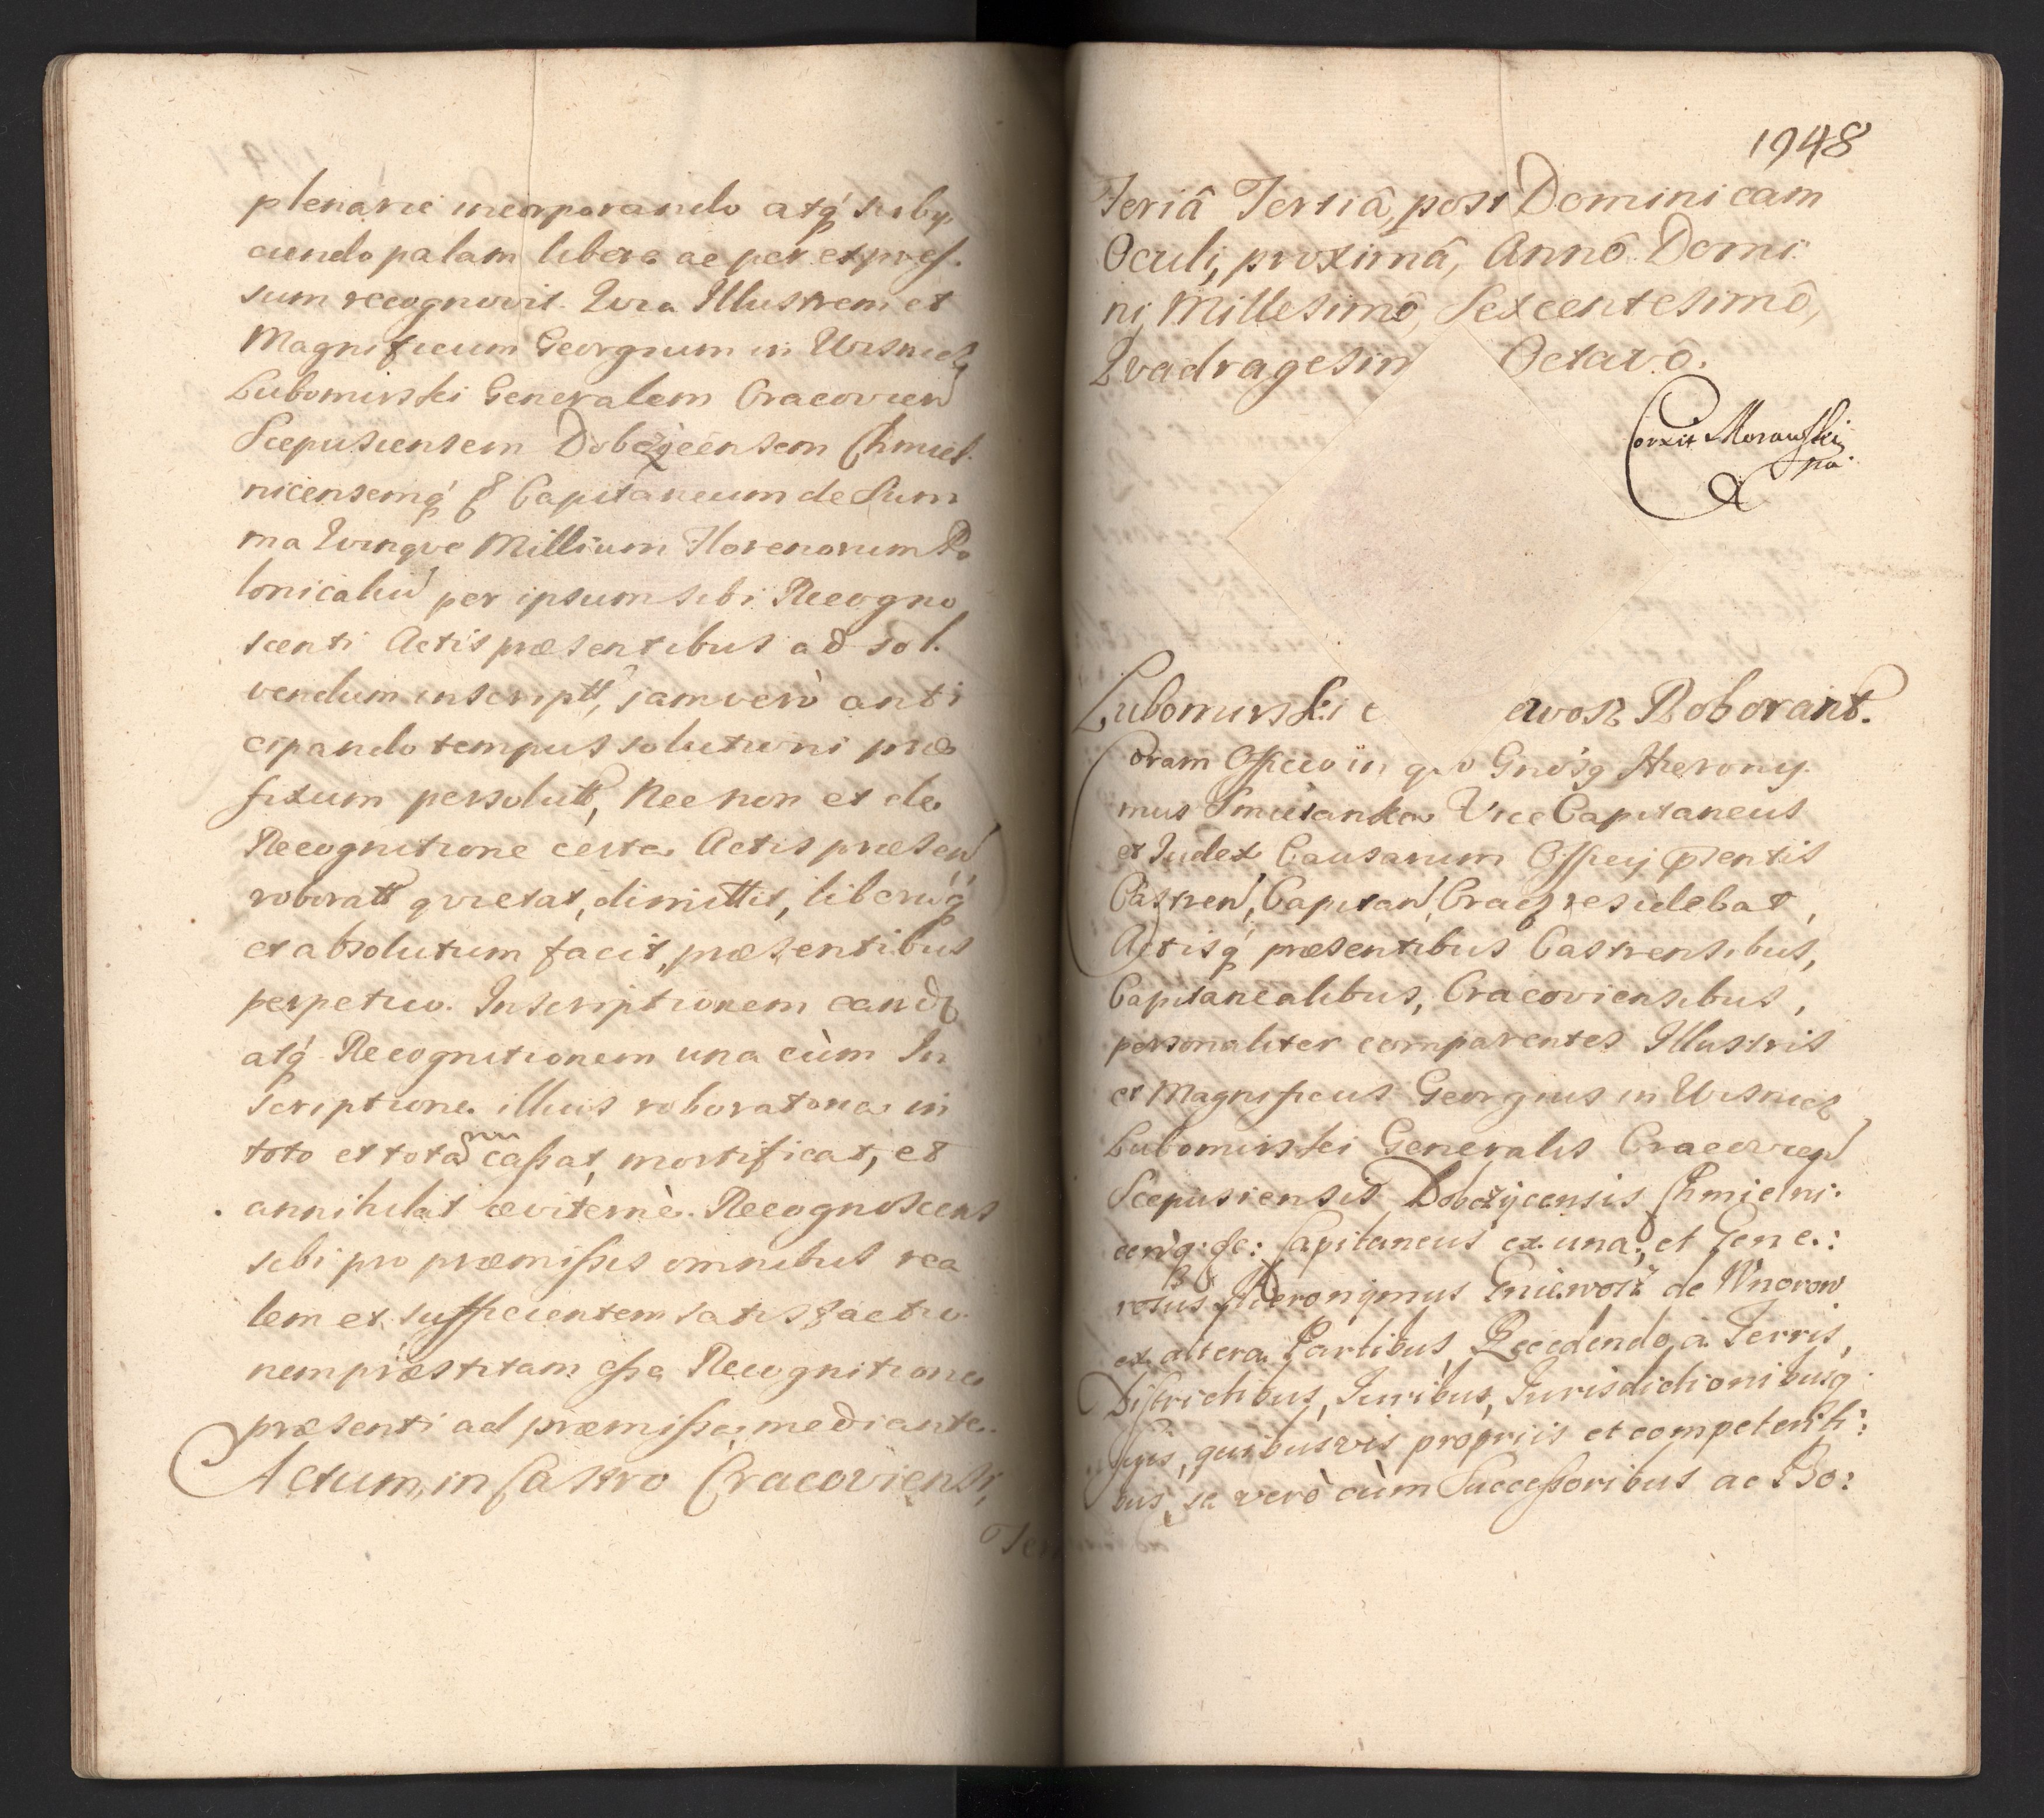 plenarie incorporando atq́ suby,
ciendo palam libere ac per expres,
sum recognovit. Qvia Illustrem et
Magnificum Georgium in Wisnicz
Lubomirski Generalem Cracovien
Scepusiensem Dobczÿcensem Chmiel
nicensemq́ & Capitaneum de Sum
ma Qvinqve Millium Florenorum Po
lonicaliu per ipsum sibi Recogno
scenti Actis præsentibus ad sol.
vendum inscriptt, jam verò anti
cipando tempus solutioni præ
fixum persolutt, Nec non et de
Recognitione certa Actis præsen
roboratt qvietat, dimittit, liberuq́
et absolutum facit, præsentibus
perpetuo. Inscriptionem eand
atq́ Recognitionem una cùm In
scriptione illius roboratoria in
toto et tota cassat, mortificat, et
annihilat æviternè. Recognoscens
sibi pro præmissis omnibus rea
lem et sufficientem satisfactio
nem præstitam esse Recognitione
præsenti ad præmissa mediante.
Actum, in Castro Cracoviensi,
1948
Feriâ Tertiâ, post Dominicam
Oculi, proximâ, Annô Domi
ni, Millesimô, Sexcentesimô,
Qvadragesim Octavô.
Corxit Morawski
Lubomirski e ewosz Roborant.
Coram Officio in quo Gnosq Hierony.
mus Smietanka Vice Capitaneus
et Iudex Causarum Officij præntis
Castren, Capitan, Crac, residebat,
Actisq́ præsentibus Castrensibus,
Capitanealibus, Cracoviensibus,
personaliter comparentes Illustris
et Magnificus Georgius in Wisnicz
Lubomirski Generalis Cracovien
Scepusiensis Dobczÿcensis Chmielni:
cenq: &c: Capitaneus ex una, et Gene:
rosus Hieronymus Gniewosz de Wnorow
ex altera Partibus, Recedendo, à Terris,
Districtibus, Iuribus, Iurisdictionibusq
suis, quibusvis propriis et competenti:
bus, se verò cùm Successoribus ac Bo: